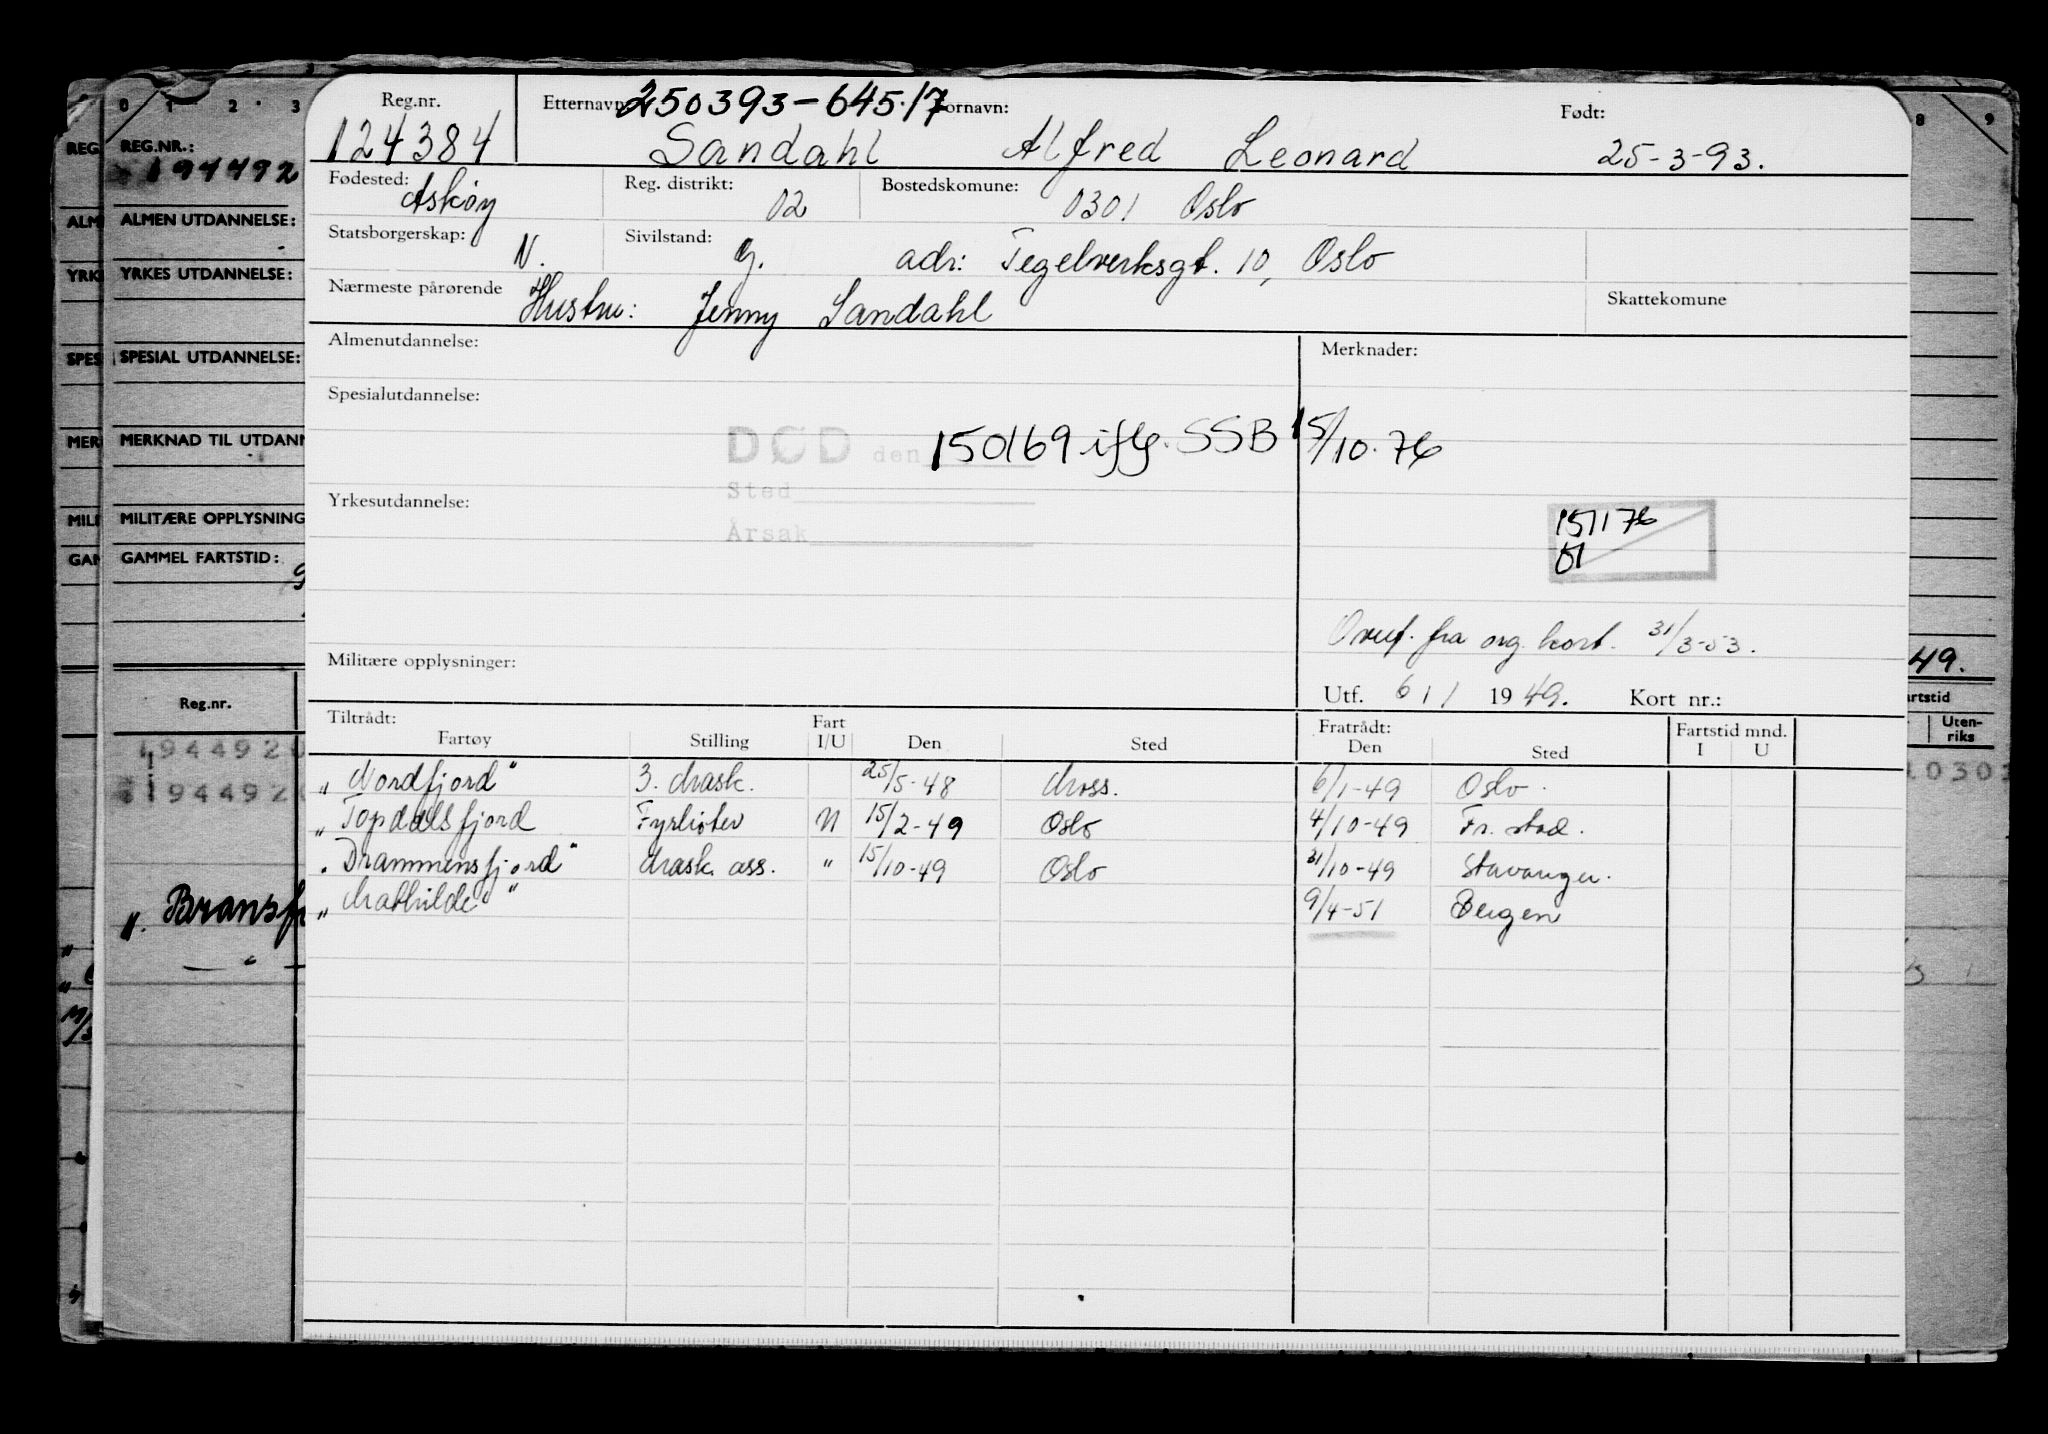 0 1 2 3
REG.NR.:
194492
ALMEN UTDANNELSE:
YRKES UTDANNELSE:
SPESIAL UTDANNELSE:
MERKNAD TIL UTDANN
MILITÆRE OPPLYSNING
GAMMEL FARTSTID:
Reg.nr.
194492
194492
„ Bransfj
Reg.nr. Etternavn 250393-645.17 Fornavn: Født:
124384 Sandahl Alfred Leonard 25-3-93.
Fødested: Askøy Reg. distrikt: 02 Bostedskomune: 0301 Oslo
Statsborgerskap: N. Sivilstand: g. adr: Tegelverksgt. 10, Oslo
Nærmeste pårørende Hustru: Jenny Sandahl Skattekomune
Almenutdannelse: Merknader:
Spesialutdannelse:
DØD den 150169 iflg. SSB 15/10.76
Sted
Yrkesutdannelse:
Årsak
151176
Overf. fra org. kort. 31/3-53.
Militære opplysninger:
Utf. 6/1 1949. Kort nr.:
Tiltrådt: Fratrådt:
Fartøy Stilling Fart I/U Den Sted Den Sted Fartstid mnd. I U
„Nordfjord" 3. Mask. 25/5-48 Moss. 6/1-49 Oslo.
„Topdalsfjord Fyrbøter U 15/2-49 Oslo 4/10-49 Fr. stad.
„Drammensfjord" Mask. ass. " 15/10-49 Oslo 31/10-49 Stavanger.
„Mathilde" 9/4-51 Bergen
8 9
49.
artstid
Uten-
riks